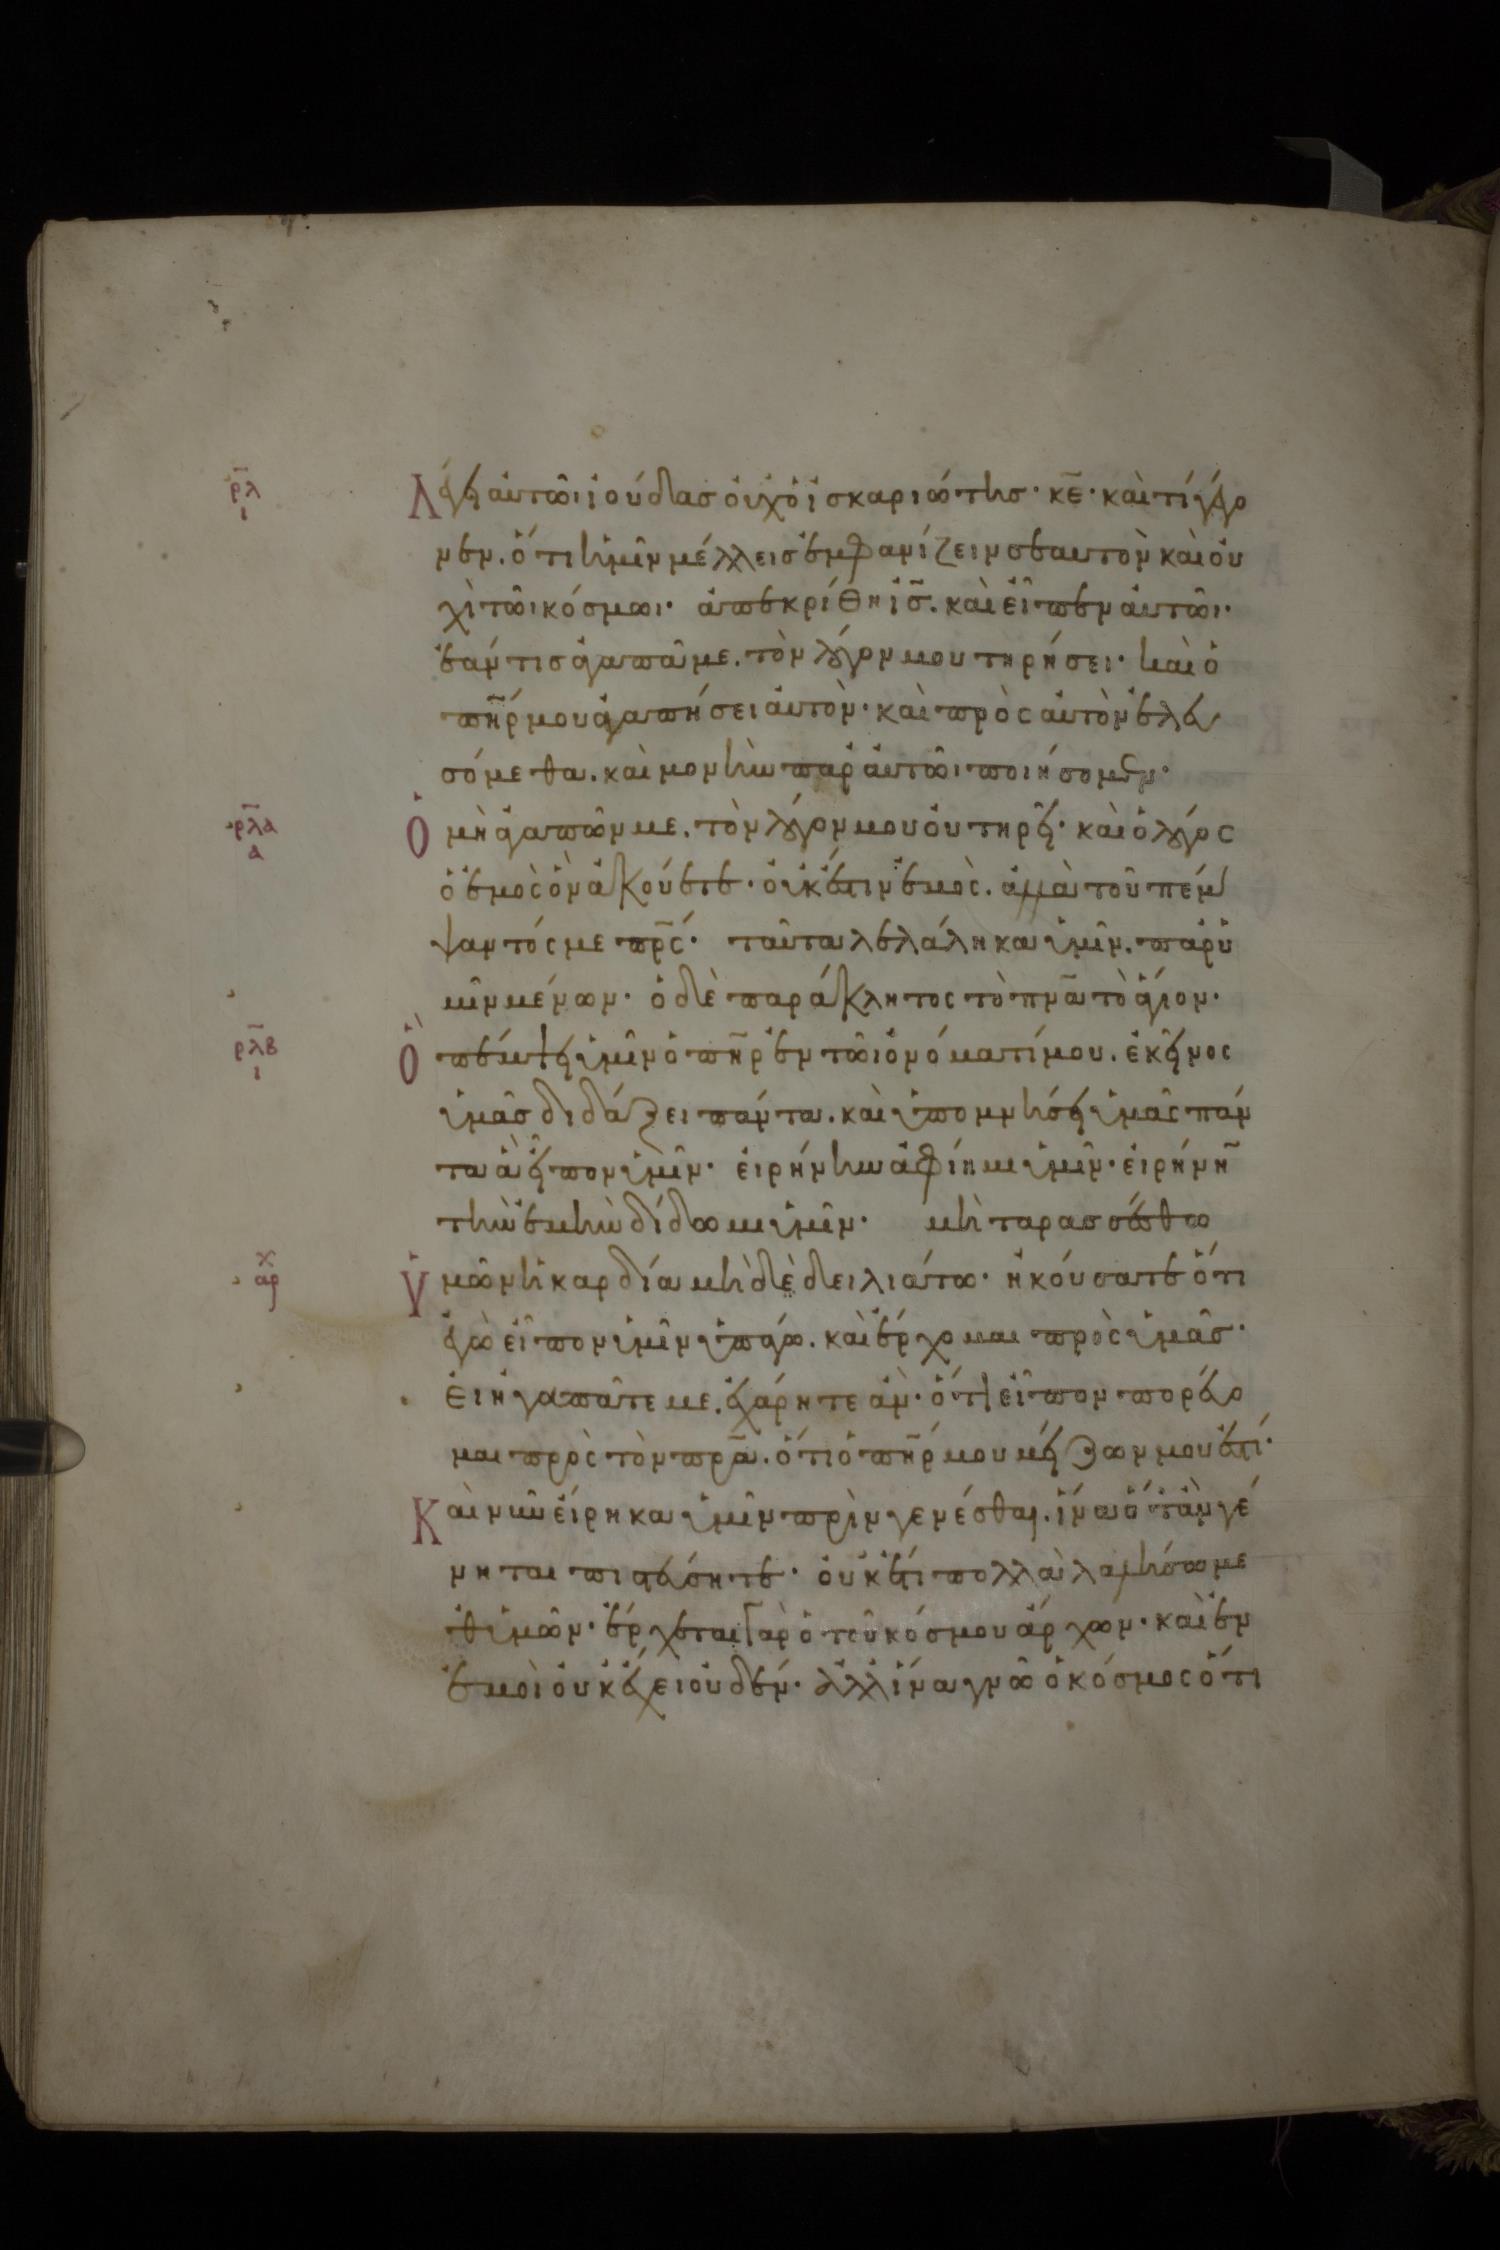 ρλ
ι
Λέγει αὐτῶι ἰούδας οὐχ ὁ ἰσκαριώτης· κε· καὶ τί γέγο
νεν. ὅτι ἡμῖν μέλλεις ἐμφανίζειν σεαυτὸν καὶ οὐ
χὶ τῶι κόσμωι· ἀπεκρίθη ις. καὶ εἶπεν αὐτῶι·
ἐάν τις ἀγαπᾶ με. τὸν λόγον μου τηρήσει· καὶ ὁ
πηρ μου ἀγαπήσει αὐτὸν· καὶ πρὸς αὐτὸν ἐλευ
σόμεθα. καὶ μονὴν παρ αὐτῶι ποιήσομεν·
ρλα
α
Ὁ μὴ ἀγαπῶν με. τὸν λόγον μου οὐ τηρεῖ· καὶ ὁ λόγος
ὁ ἐμὸς ὃν ἀκούετε· οὐκ ἔστιν ἐμὸς. ἀλλὰ τοῦ πέμ
ψαντός με πρς· ταῦτα λελάληκα ὑμῖν. παρ ὑ
μῖν μένων· ὁ δὲ παράκλητος τὸ πνα τὸ ἅγιον·
ρλβ
ι
Ὃ πέμψει ὑμῖν ὁ πηρ ἐν τῶι ὀνόματί μου. ἐκεῖνος
ὑμᾶς διδάξει πάντα. καὶ ὑπομνήσει ὑμᾶς πάν
τα ἃ εἶπον ὑμῖν· εἰρήνην ἀφίημι ὑμῖν· εἰρήνη
τὴν ἐμὴν δίδωμι ὑμῖν· μὴ ταρασσέσθω
αρχ
Ὑμῶν ἡ καρδία μὴ δὲ δειλιάτω· ἠκούσατε ὅτι
ἐγὼ εἶπον ὑμῖν ὑπάγω. καὶ ἔρχομαι πρὸς ὑμᾶς·
Εἰ ἠγαπᾶτε με. ἐχάρητε ἂν· ὅτι εἶπον πορεύο
μαι πρὸς τὸν πρα. ὅτι ὁ πηρ μου μείζων μου ἐστί·
Καὶ νῦν εἴρηκα ὑμῖν πρὶν γενέσθαι. ἵνα ὅταν γέ
νηται πιστεύσητε· οὐκ ἔτι πολλὰ λαλήσω με
θ ὑμῶν· ἔρχεται γὰρ ὁ τοῦ κόσμου ἄρχων· καὶ ἐν
ἐμοὶ οὐκ ἔχει οὐδέν· ἀλλ ἵνα γνῶ ὁ κόσμος ὅτι